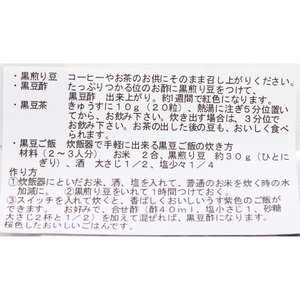 ・黒煎り豆　コーヒーやお茶のお供にそのまま召し上がりください。
・黒豆酢　たっぷりつかる位のお酢に黒煎り豆をつけて、
黒豆酢　出来上がり。約1週間で紅色になります。
・黒豆茶　きゅうすに10g（20粒）、熱湯に注ぎ5分位置い
てから、お飲み下さい。炊き出す場合は、3分位で
お飲み下さい。お茶の出した後の豆も、おいしく食べ
られます。
・黒豆ご飯　炊飯器で手軽に出来る黒豆ご飯の炊き方
材料（2～3人分）　お米　2合、黒煎り豆　約30g（ひとに
ぎり）、酒　大さじ1/2、塩少々1/4
作り方
①炊飯器にといだお米、酒、塩を入れて、普通のお米を炊く時の水
加減に。　②黒煎り豆をいれて1時間つけておく。
③スイッチを入れて炊くと、香ばしくおいしいうす紫色のご飯が
できます。　お好みで、合せ酢（酢40ml、塩小さじ1、砂糖
大さじ2と1/2）を加えて混ぜれば、黒豆酢になります。
桜色したおいしいごはんです。